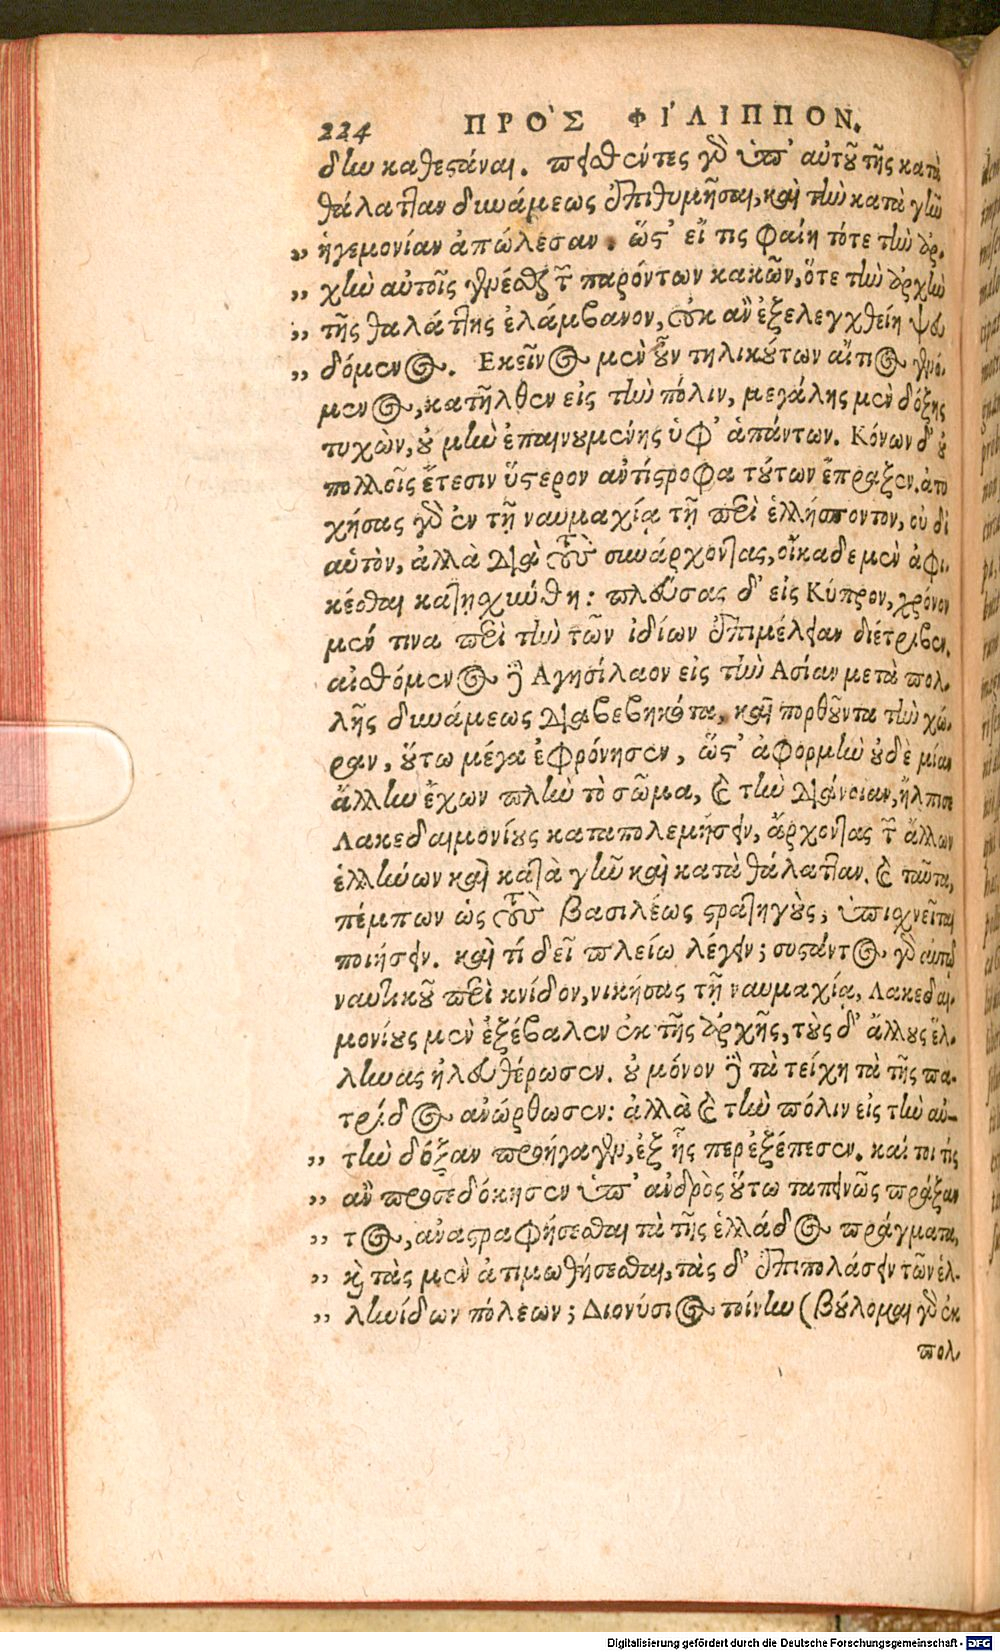 224 ΠΡΟ᾽Σ ΦΙ᾽ΛΙΠΠΟΝ.
δὼ καθεστάναι. πεισθέντες γὸ ὑπ᾽ αὐτοῦ τῆς κατὰ
θάλατταν δυνάμεως ἐπιθυμῆσαι, καὶ τὴν κατὰ γῆν
„ ἡγεμονίαν ἀπώλεσαν. ὥστ᾽ εἴ τις φαίη τότε τὴν ἀρ-
„ χὴν αὐτοῖς γενέσθαι τῶν παρόντων κακῶν, ὅτε τὴν ἀρχὴν
„ τῆς θαλάττης ἐλάμβανον, οὐκ ἂν ἐξελεγχθείη ψευ
„ δόμενος. Εκεῖνος μὲν οὖν τηλικούτων αἴτιος γενό-
μενος, κατῆλθεν εἰς τὴν πόλιν, μεγάλης μὲν δόξης
τυχὼν, οὐ μὴν ἐπαινουμένης ὑφ᾽ ἁπάντων. Κόνων δ᾽ οὐ
πολλοῖς ἔτεσιν ὕστερον ἀντίστροφα τούτων ἔπραξεν. ἀτυ
χήσας γὸ ἐν τῇ ναυμαχίᾳ τῇ περὶ ἑλλήσποντον, οὐ δι
αὑτὸν, ἀλλὰ διὰ τοὺς συνάρχοντας, οἴκαδε μὲν ἀφι-
κέσθαι κατῃσχύνθη: πλεύσας δ᾽ εἰς Κύπρον, χρόνον
μέν τινα περὶ τὴν τῶν ἰδίων ἐπιμέλειαν διέτριβεν.
αἰσθόμενος δὲ Αγησίλαον εἰς τὴν Ασίαν μετὰ πολ-
λῆς δυνάμεως διαβεβηκότα, καὶ πορθοῦντα τὴν χώ-
ραν, οὕτω μέγα ἐφρόνησεν, ὥστ᾽ ἀφορμὴν οὐδὲ μίαν
ἄλλην ἔχων πλὴν τὸ σῶμα, καὶ τὴν διάνοιαν, ἤλπισε
Λακεδαιμονίους καταπολεμήσειν, ἄρχοντας τῶν ἄλλων
ἑλλήνων καὶ κατὰ γῆν καὶ κατὰ θάλατταν. καὶ ταῦτα,
πέμπων ὡς τοὺς βασιλέως στρατηγοὺς, ὑπισχνεῖται
ποιήσειν. καὶ τί δεῖ πλείω λέγειν; συστάντος γὸ αὐτῷ
ναυτικοῦ περὶ κνίδον, νικήσας τῇ ναυμαχίᾳ, Λακεδαι-
μονίους μὲν ἐξέβαλεν ἐκ τῆς ἀρχῆς, τοὺς δ᾽ ἄλλους ἕλ-
ληνας ἠλευθέρωσεν. οὐ μόνον δὲ τὰ τείχη τὰ τῆς πα-
τρίδος ἀνώρθωσεν: ἀλλὰ καὶ τὴν πόλιν εἰς τὴν αὐ-
„ τὴν δόξαν προήγαγεν, ἐξ ἧς περ ἐξέπεσεν. καί τοι τίς
„ ἂν προσεδόκησεν ὑπ᾽ ἀνδρὸς οὕτω ταπεινῶς πράξαν
„ τος, ἀναστραφήσεσθαι τὰ τῆς ἑλλάδος πράγματα,
„ καὶ τὰς μὲν ἀτιμωθήσεσθαι, τὰς δ᾽ ἐπιπολάσειν τῶν ἑλ-
„ ληνίδων πόλεων; Διονύσιος τοίνυν (βούλομαι γὸ ἐκ
πολ-
Digitalisierung gefördert durch die Deutsche Forschungsgemeinschaft - DFG